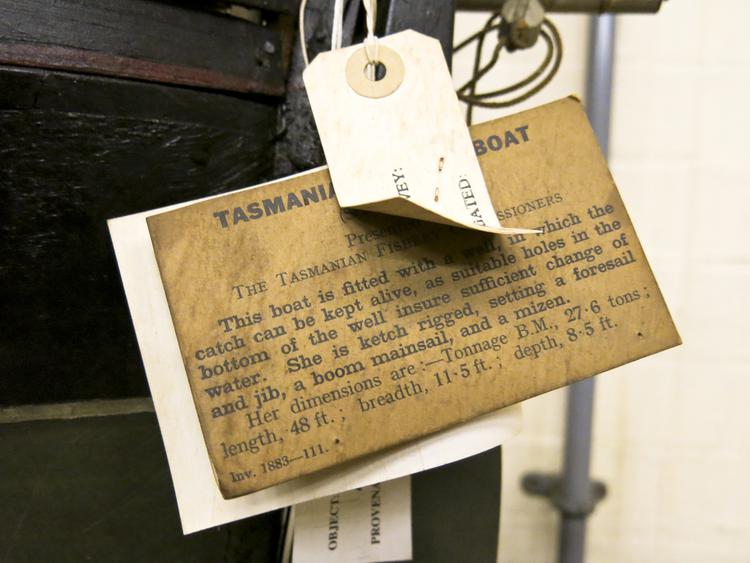 TASMANIA BOAT
THE TASMANIAN FISH SSIONERS
This boat is fitted with a well, in which the
catch can be kept alive, as suitable holes in the
bottom of the well insure sufficient change of
water. She is ketch rigged, setting a foresail
and jib, a boom mainsail, and a mizen.
Her dimensions are :—Tonnage B.M., 27·6 tons ;
length, 48 ft. ; breadth, 11·5 ft. ; depth, 8·5 ft.
Inv. 1883—111.
VEY:
GATED:
OBJECT:
PROVENA